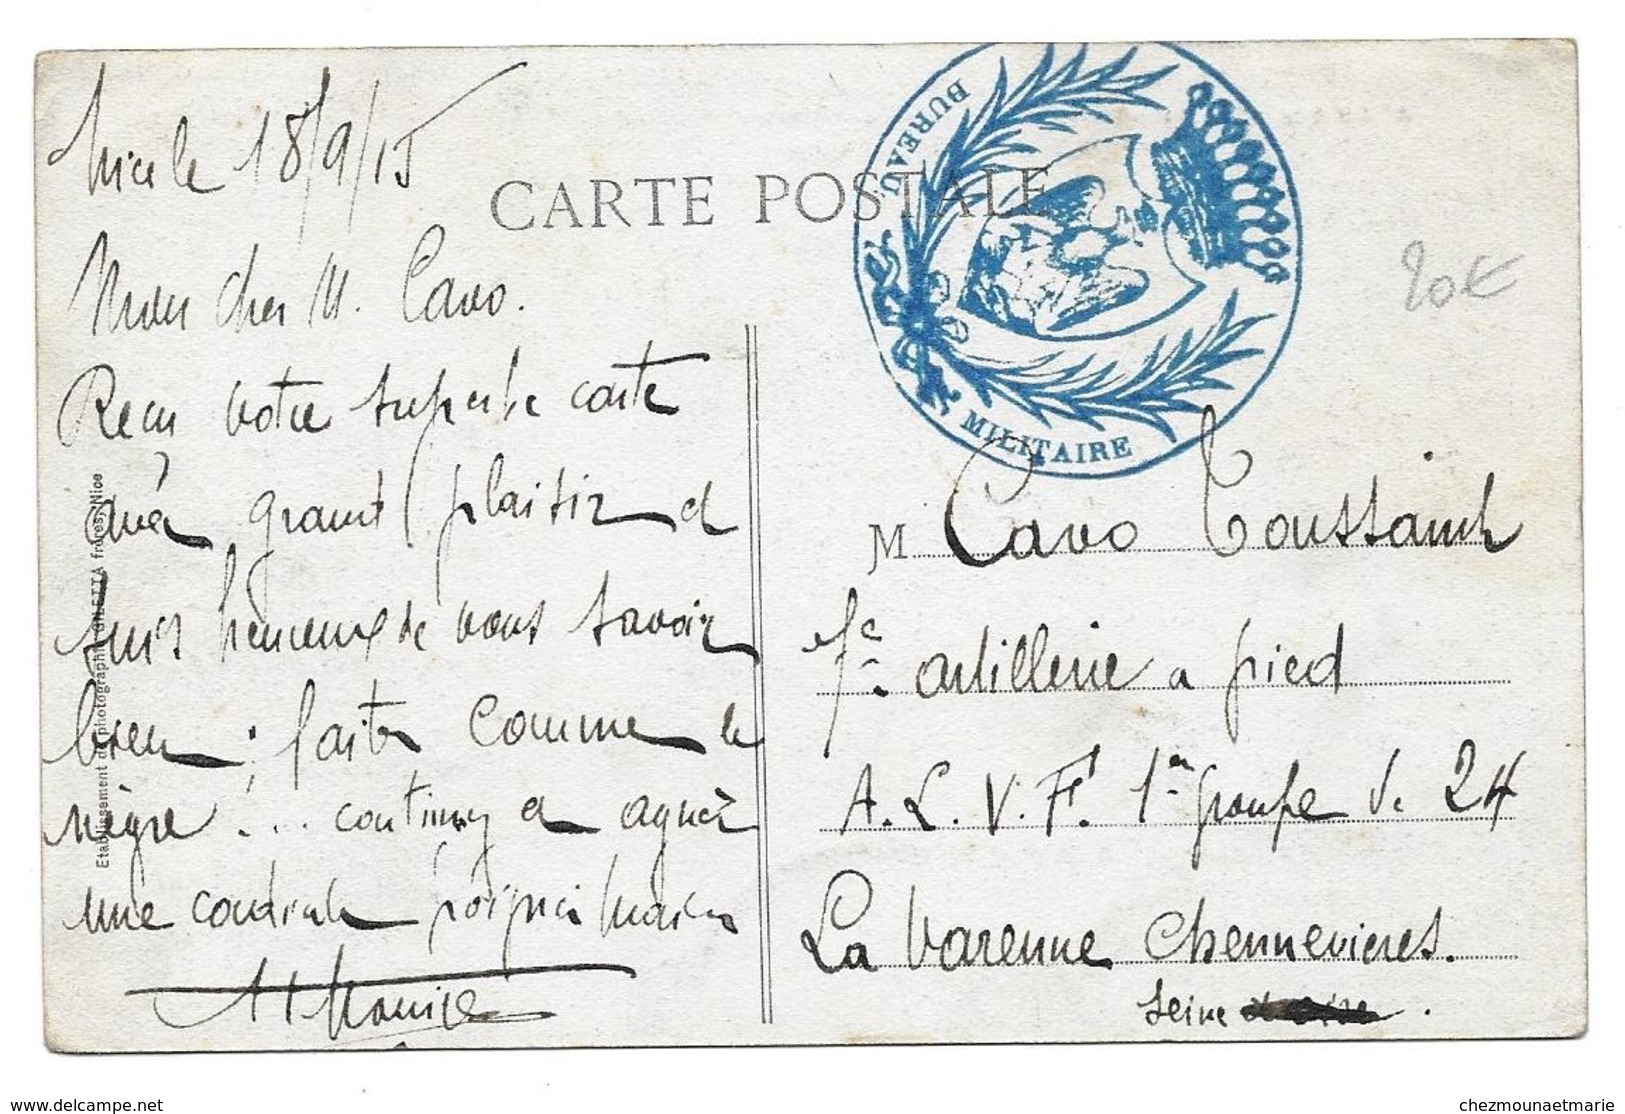 Nice le 18/9/15
Mon cher M. Cavo.
Reçu votre superbe carte
avec grand plaisir et
suis heureux de vous savoir
bien ; faites comme le
nègre ! ... continuez et agréez
une cordiale poignée mains
CARTE POSTALE
BUREAU MILITAIRE
20€
M Cavo Toussaint
artillerie a pied
A. L. V. F. 1er groupe de 24
La Varenne Chennevieres.
Seine
Etablissement de photographie GILETTA frères, Nice
www.delcampe.net
chezmounaetmarie